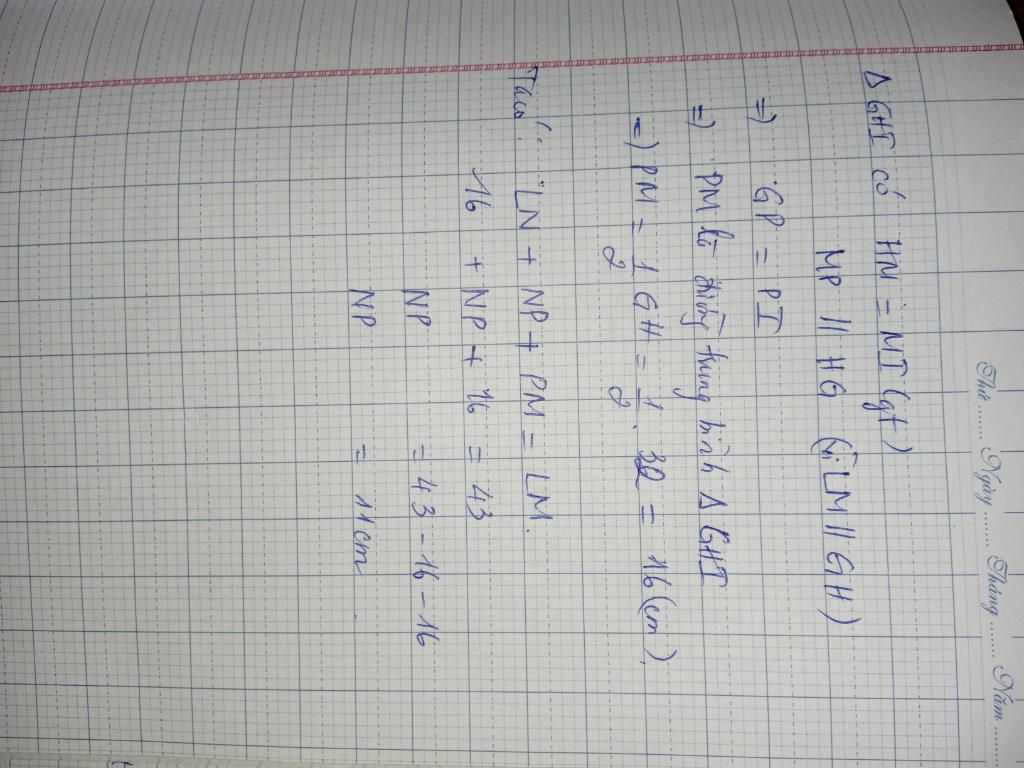 Thứ ........ Ngày ........ Tháng ....... Năm ........
Δ GHI có HN = NI (gt)
MP // HG (vì LM // GH)
=) GP = PI
=) PM là đường trung bình Δ GHI
=) PM = 1/2 GH = 1/2 . 32 = 16 (cm)
Ta có: LN + NP + PM = LM.
16 + NP + 16 = 43
NP = 43 - 16 - 16
NP = 11 cm